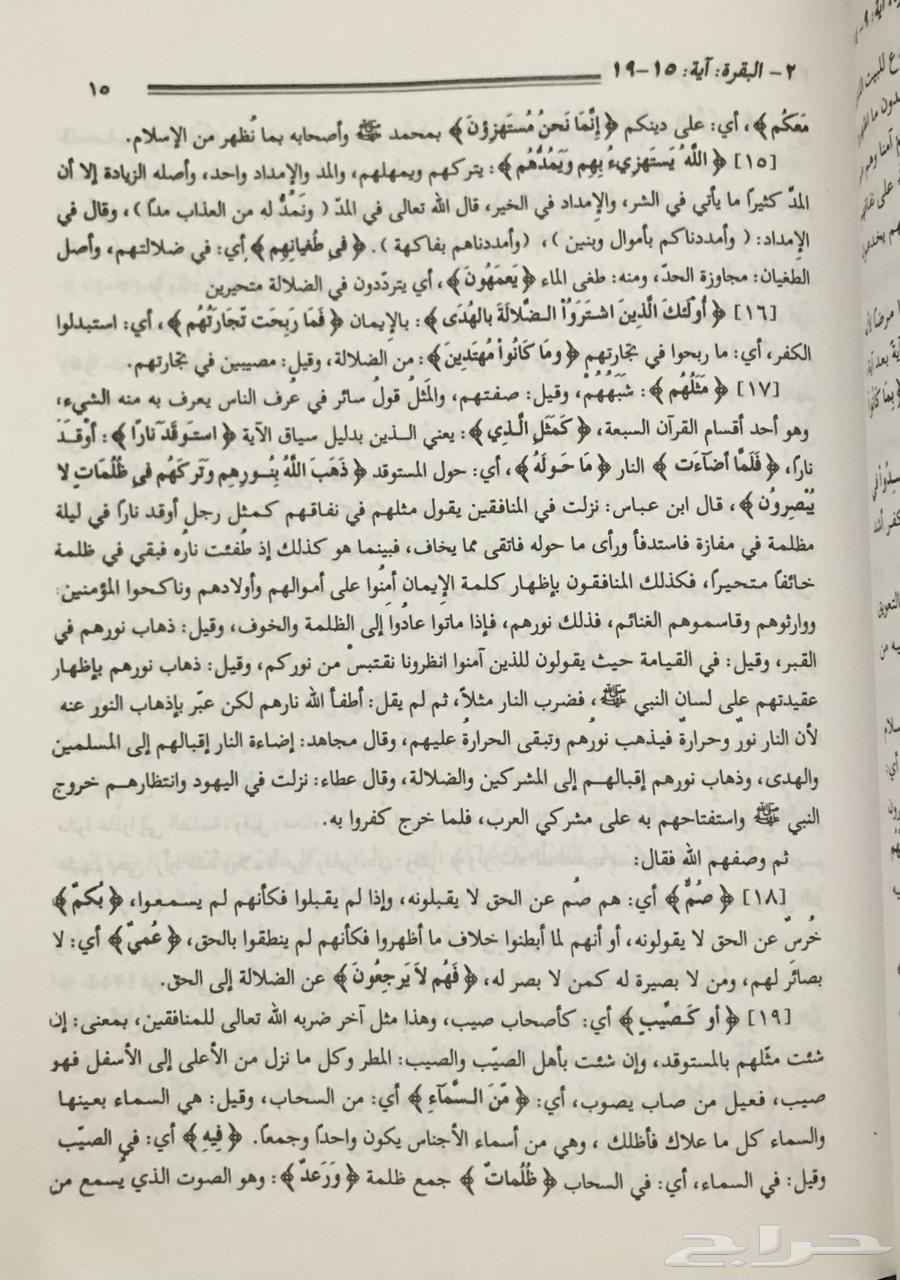 ٢- البقرة: آية: ١٥-١٩
١٥
مَعَكُم﴾، أي: على دينكم ﴿إِنَّمَا نَحنُ مُستَهزِؤنَ﴾ بمحمد ﷺ وأصحابه بما نُظهر من الإسلام.
[١٥] ﴿اللَّهُ يَستَهزِيءُ بِهِم وَيَمُدُّهُم﴾: يتركهم ويمهلهم، والمد والإمداد واحد، وأصله الزيادة إلا أن
المدّ كثيرًا ما يأتي في الشر، والإمداد في الخير، قال الله تعالى في المدّ ( ونَمُدُّ له من العذاب مدًا )، وقال في
الإمداد: ( وأمددناكم بأموال وبنين )، (وأمددناهم بفاكهة ). ﴿فِي طُغيانِهِم﴾ أي: في ضلالتهم، وأصل
الطغيان: مجاوزة الحدّ، ومنه: طغى الماء ﴿يَعمَهُونَ﴾، أي يتردّدون في الضلالة متحيرين
[١٦] ﴿أُولَئكَ الَّذِينَ اشتَرَوُا الضَّلالَةَ بالهُدَى﴾: بالإيمان ﴿فَمَا رَبِحَت تِّجَارَتُهُم﴾، أي: استبدلوا
الكفر، أي: ما ربحوا في تجارتهم ﴿وما كَانُوا مُهتَدِينَ﴾: من الضلالة، وقيل: مصيبين في تجارتهم.
[١٧] ﴿مَثَلُهُم﴾: شَبَهُهُمْ، وقيل: صفتهم، والمَثلُ قولُ سائر في عُرف الناس يعرف به منه الشيء،
وهو أحد أقسام القرآن السبعة، ﴿كَمَثَلِ الَّذِي﴾: يعني الذين بدليل سياق الآية ﴿استَوقَدَ نارًا﴾: أوْقَدَ
نارًا، ﴿فَلَمَّا أضَآءَت﴾ النار ﴿مَا حَولَهُ﴾، أي: حول المستوقد ﴿ذَهَبَ اللَّهُ بِنُورِهِم وَتَرَكَهُم فِي ظُلُمَاتٍ لا
يُبْصِرُون﴾، قال ابن عباس: نزلت في المنافقين يقول مثلهم في نفاقهم كمثل رجل أوقد نارًا في ليلة
مظلمة في مفازة فاستدفأ ورأى ما حوله فاتقى مما يخاف، فبينما هو كذلك إذ طُفئت نارُه فبقي في ظلمة
خائفًا متحيرًا، فكذلك المنافقون بإظهار كلمة الإيمان أمِنُوا على أموالهم وأولادهم وناكحوا المؤمنين
ووارثوهم وقاسموهم الغنائم، فذلك نورهم، فإذا ماتوا عادُوا إلى الظلمة والخوف، وقيل: ذهاب نورهم في
القبر، وقيل: في القيامة حيث يقولون للذين آمنوا انظرونا نقتبسْ من نوركم، وقيل: ذهاب نورهم بإظهار
عقيدتهم على لسان النبي ﷺ، فضرب النار مثلاً، ثم لم يقل: أطفأ الله نارهم لكن عبّر بإذهاب النور عنه
لأن النار نورٌ وحرارةٌ فيذهب نورُهم وتبقى الحرارةُ عليهم، وقال مجاهد: إضاءة النار إقبالهم إلى المسلمين
والهدى، وذهاب نورهم إقبالهم إلى المشركين والضلالة، وقال عطاء: نزلت في اليهود وانتظارهم خروج
النبي ﷺ واستفتاحهم به على مشركي العرب، فلما خرج كفروا به.
ثم وصفهم الله فقال:
[١٨] ﴿صُمٌّ﴾ أي: هم صُم عن الحق لا يقبلونه، وإذا لم يقبلوا فكأنهم لم يسمعوا، ﴿بُكمٌ﴾
خُرسٌ عن الحق لا يقولونه، أو أنهم لما أبطنوا خلاف ما أظهروا فكأنهم لم ينطقوا بالحق، ﴿عُميٌ﴾ أي: لا
بصائَر لهم، ومن لا بصيرة له كمن لا بصر له، ﴿فَهُم لاَ يَرجِعُونَ﴾ عن الضلالة إلى الحق.
[١٩] ﴿أو كَصَيِّبٍ﴾ أي: كأصحاب صيب، وهذا مثل آخر ضربه الله تعالى للمنافقين، بمعنى: إن
شئت مثّلهم بالمستوقد، وإن شئت بأهل الصيّب والصيب: المطر وكل ما نزل من الأعلى إلى الأسفل فهو
صيب، فعيل من صاب يصوب، أي: ﴿مِّنَ السَّمَآءِ﴾ أي: من السحاب، وقيل: هي السماء بعينها
والسماء كل ما علاك فأظلك، وهي من أسماء الأجناس يكون واحدًا وجمعاً. ﴿فِيهِ﴾ أي: في الصيّب
وقيل: في السماء، أي: في السحاب ﴿ظُلُماتٌ﴾ جمع ظلمة ﴿وَرَعدٌ﴾: وهو الصوت الذي يُسمع من
حراج